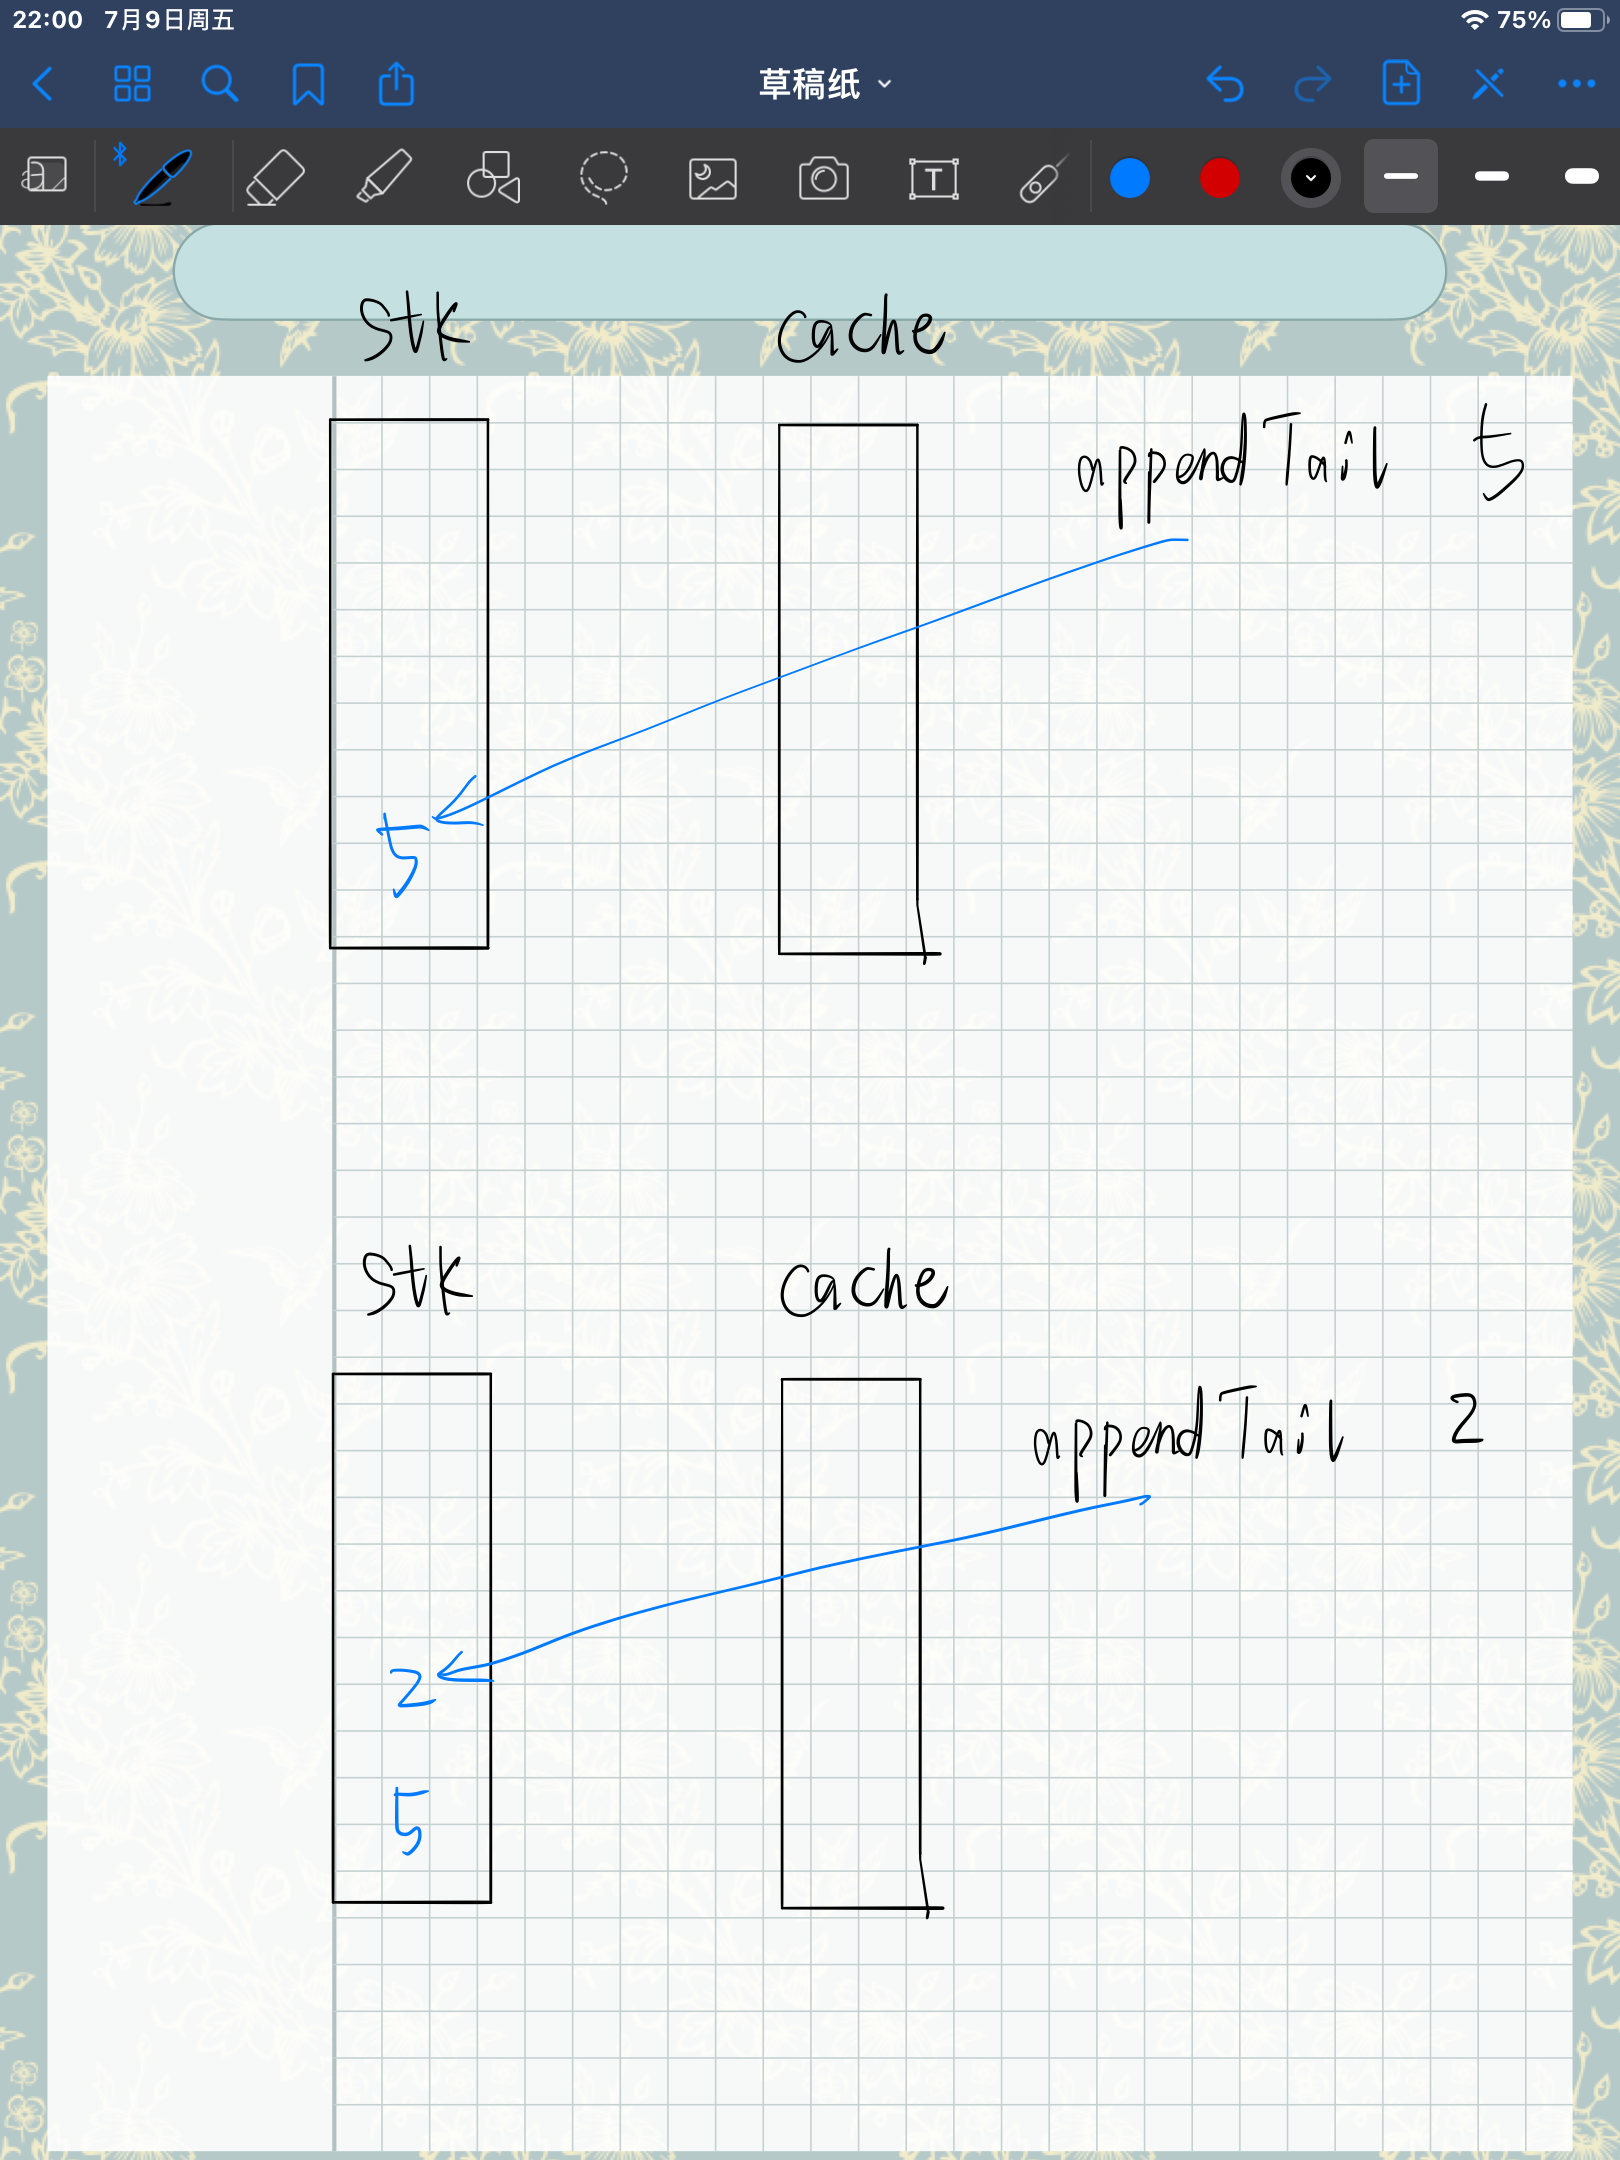 22:00 7月9日周五 75%
草稿纸
T
stk cache
appendTail 5
5
stk cache
appendTail 2
2
5